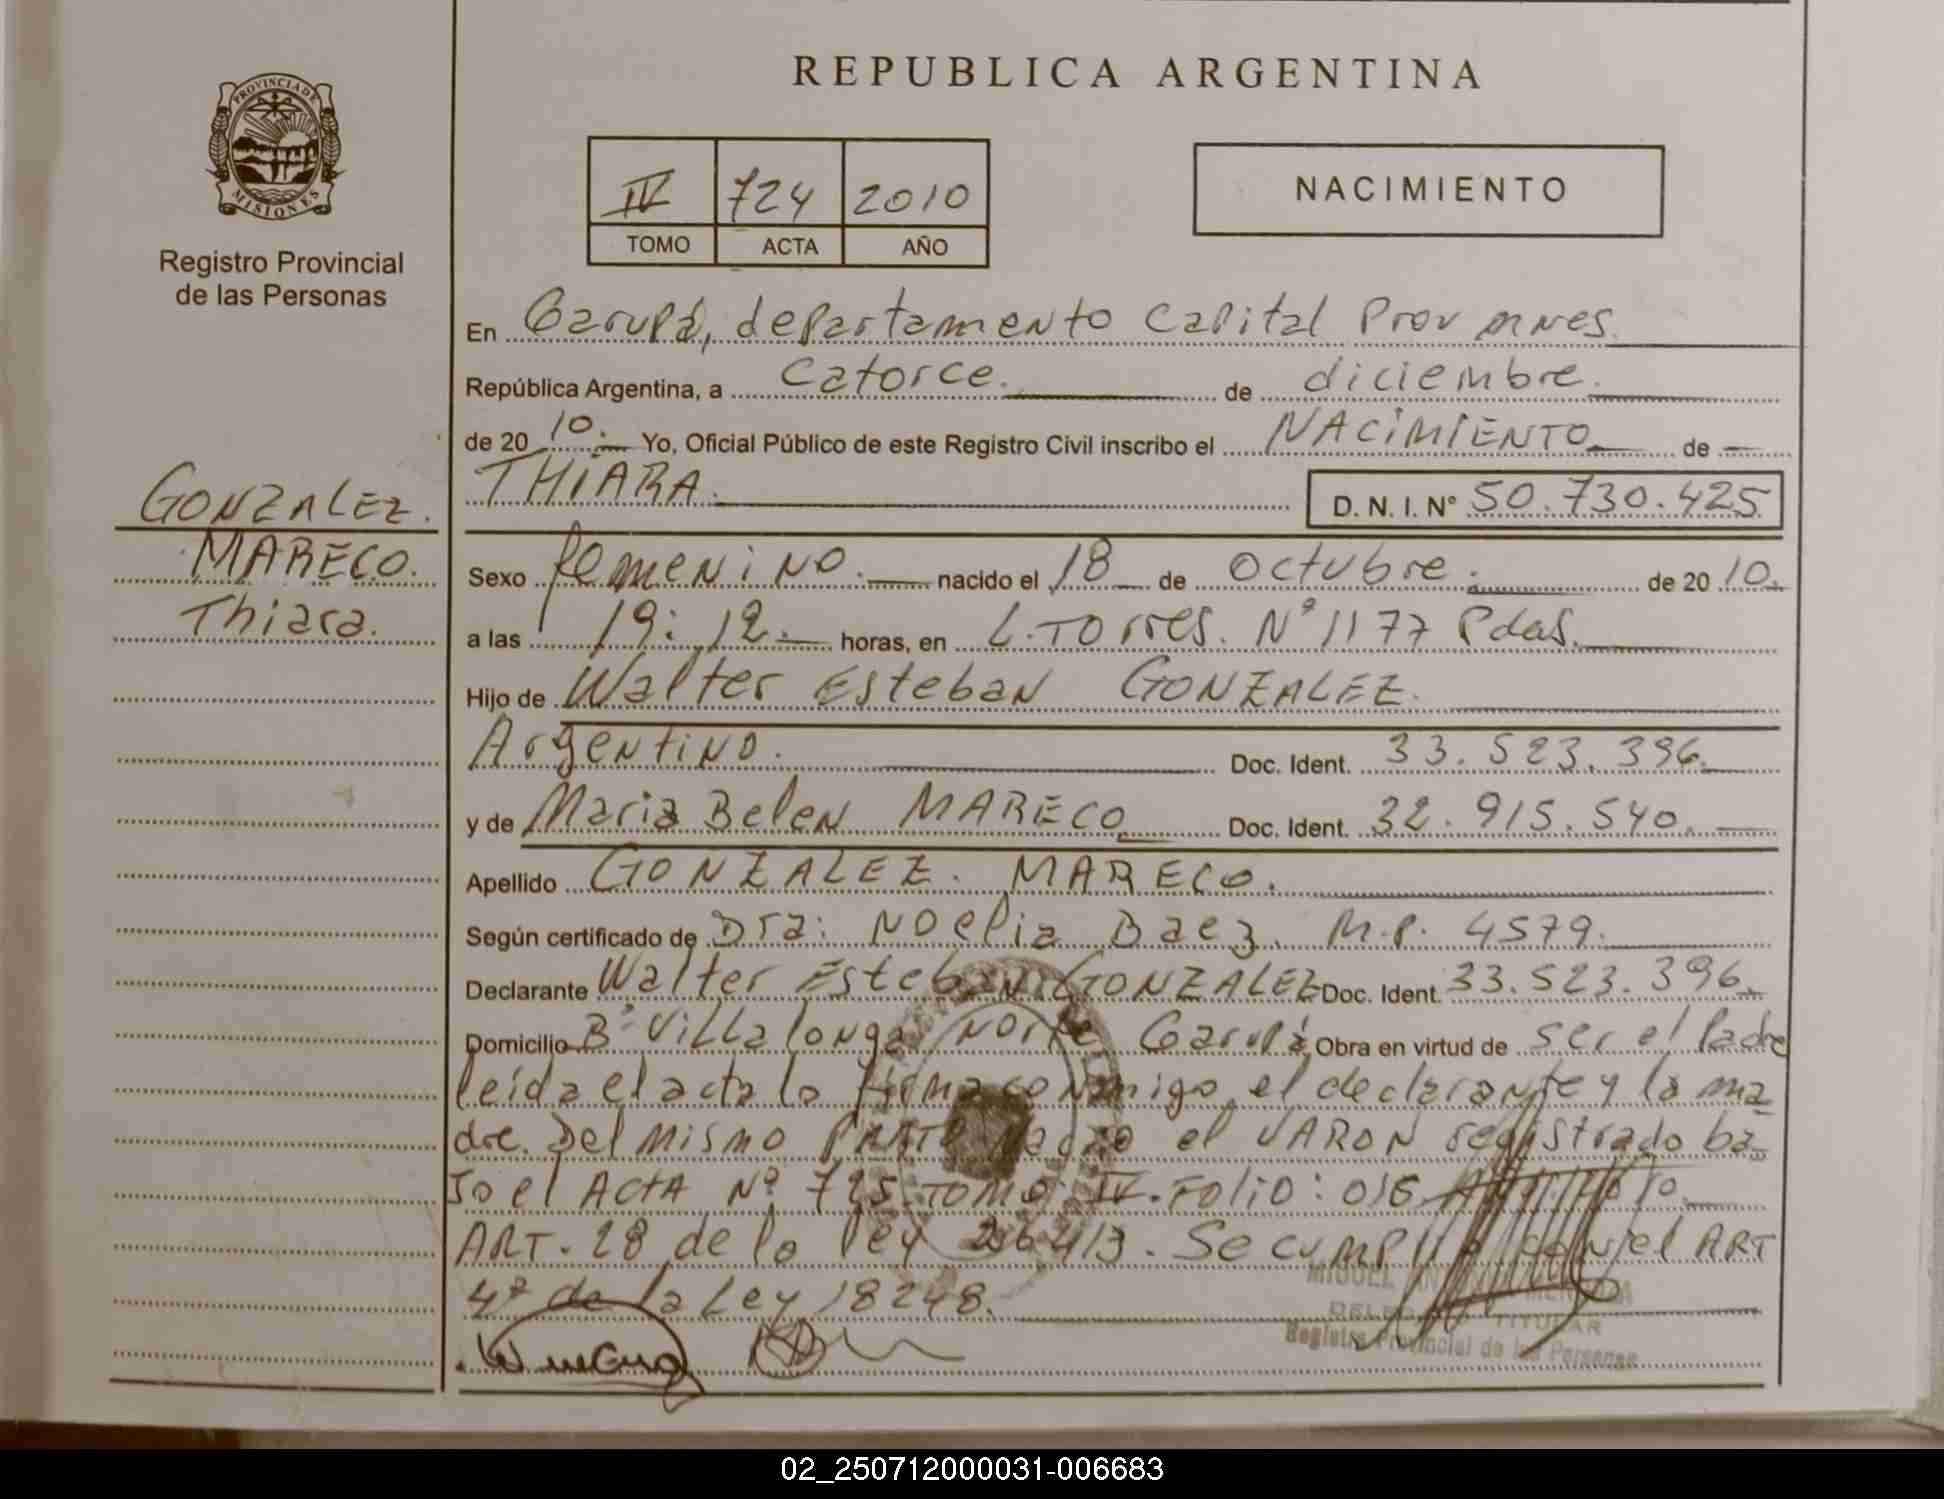 REPUBLICA ARGENTINA
PROVINCIA DE
MISIONES
Registro Provincial
de las Personas
IV 724 2010
TOMO ACTA AÑO
NACIMIENTO
En Garupá, departamento Capital Prov mnes.
República Argentina, a catorce. de diciembre.
de 20 10. Yo, Oficial Público de este Registro Civil inscribo el NACIMIENTO de
THIARA.
D. N. I. N° 50.730.425
GONZALEZ.
MARECO.
Thiara.
Sexo femenino. nacido el 18 de octubre. de 20 10.
a las 19:12. horas, en L. Torres. N° 1177 Pdas.
Hijo de Walter Esteban GONZALEZ.
Argentino. Doc. Ident. 33.523.396.
y de Maria Belen MARECO Doc. Ident. 32.915.540.
Apellido GONZALEZ. MARECO.
Según certificado de Dra: Noelia Baez. M.P. 4579.
Declarante Walter Esteban GONZALEZ Doc. Ident. 33.523.396.
Domicilio B° Villalonga Norte Garupá Obra en virtud de ser el Padre
leída el acta la firma conmigo el declarante y la ma
dre. Del mismo PARTO nació el VARON registrado ba
jo el ACTA N° 725 TOMO IV. Folio: 016
ART. 28 de la ley 26413. Se cumplio con el ART
4° de la Ley 18248.
MIGUEL
DELEGADO TITULAR
Registro Provincial de las Personas
02_250712000031-006683